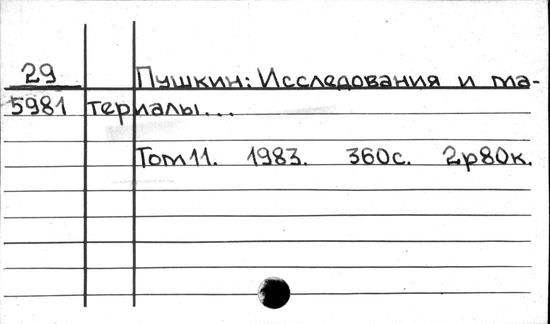 29 Пушкин: Исследования и ма-
5981 териалы...
Том 11. 1983. 360с. 2р80к.